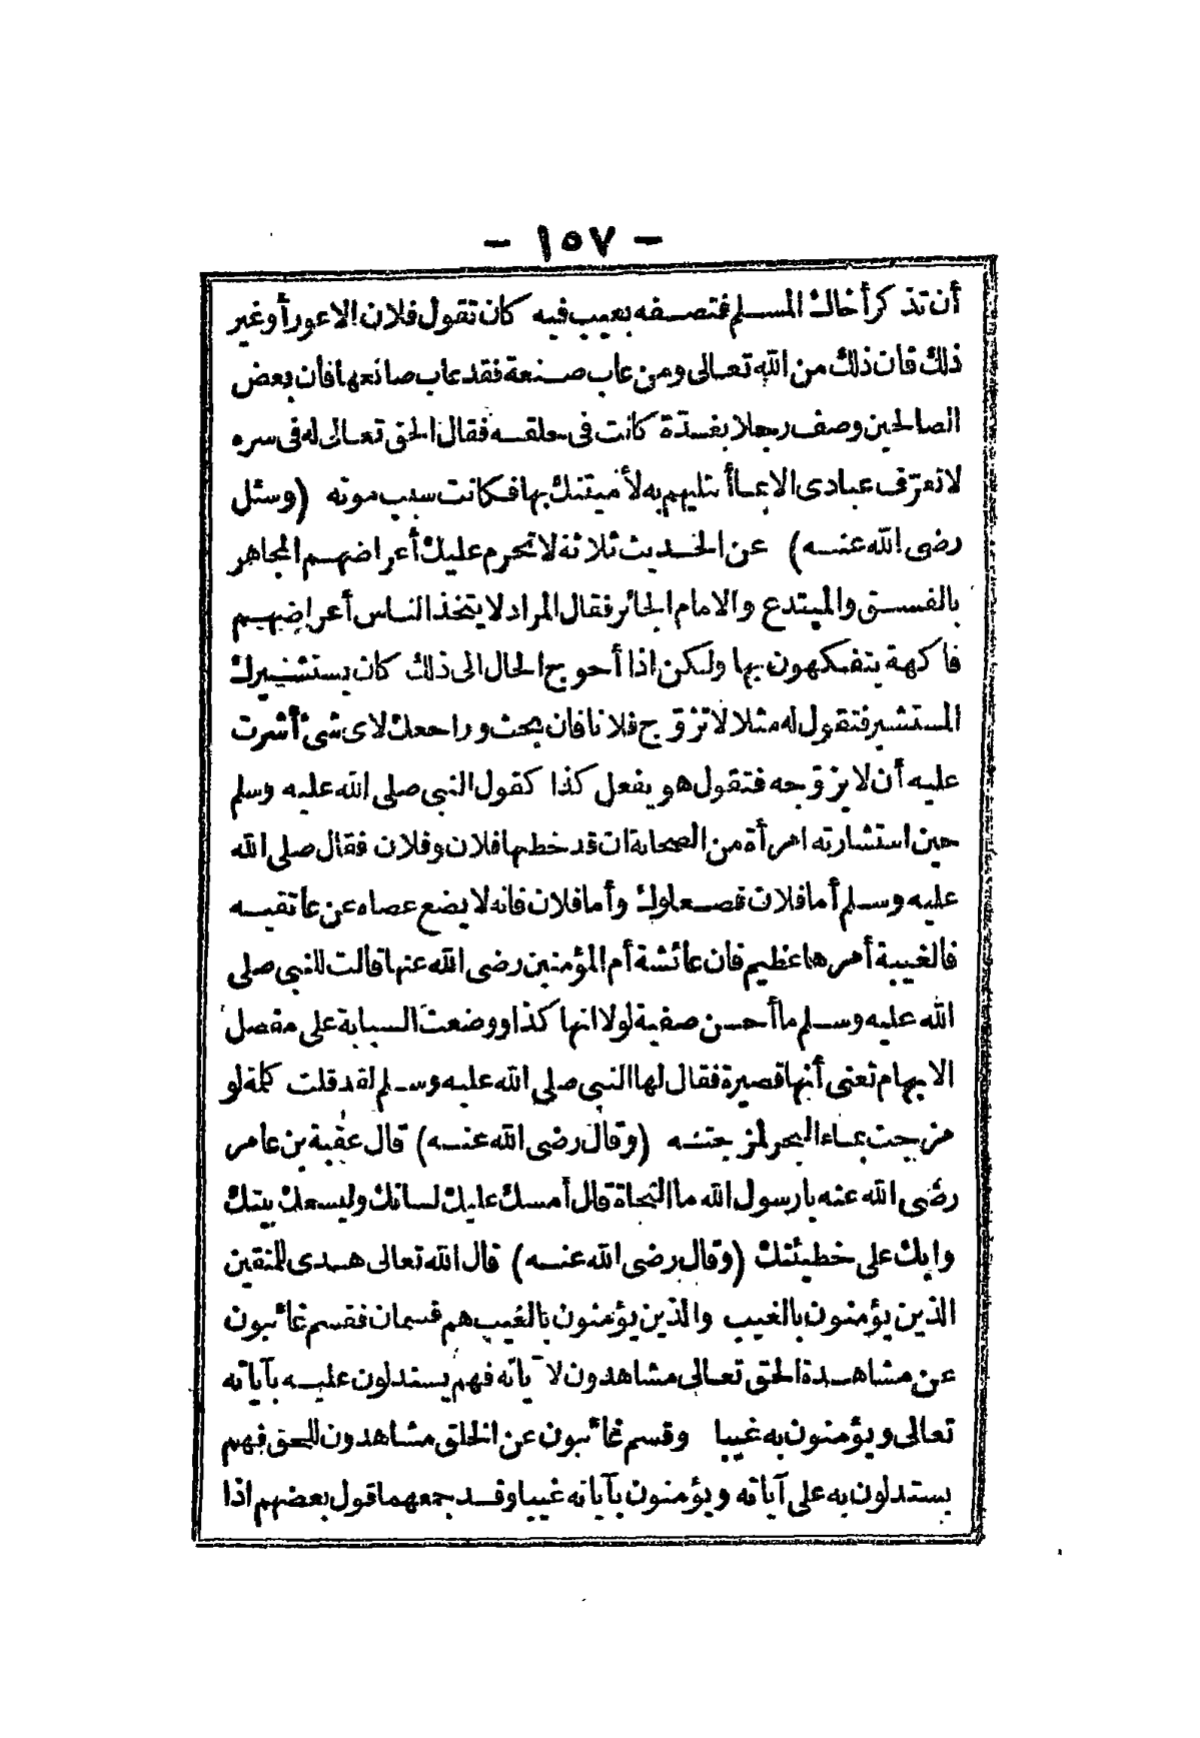 - ١٥٧ -
أن تذكر أخاك المسلم فتصفه بعيب فيه كان تقول فلان الاعور أو غير
ذلك فان ذلك من الله تعالى ومن عاب صنعة فقد عاب صانعها فان بعض
الصالحين وصف رجلا بغدّة كانت فى حلقه فقال الحق تعالى له فى سره
لا تعرّف عبادى الا بما أبتليهم به لأميتنك بها فكانت سبب موته (وسئل
رضى الله عنه) عن الحديث ثلاثة لا تحرم عليك أعراضهم المجاهر
بالفسق والمبتدع والامام الجائر فقال المراد لا يتخذ الناس أعراضهم
فاكهة يتفكهون بها ولكن اذا أحوج الحال الى ذلك كان يستشيرك
المستشير فتقول له مثلا لا تزوّج فلانا فان بحث وراجعك لاى شئ أشرت
عليه أن لا يزوّجه فتقول هو يفعل كذا كقول النبى صلى الله عليه وسلم
حين استشارته امرأة من الصحابة ان قد خطبها فلان وفلان فقال صلى الله
عليه وسلم أما فلان فصعلوك وأما فلان فانه لا يضع عصاه عن عاتقيه
فالغيبة أمرها عظيم فان عائشة أم المؤمنين رضى الله عنها قالت للنبى صلى
الله عليه وسلم ما أحسن صفية لولا انها كذا ووضعت السبابة على مفصل
الابهام تعنى أنها قصيرة فقال لها النبى صلى الله عليه وسلم لقد قلت كلمة لو
مزجت بماء البحر لمزجته (وقال رضى الله عنه) قال عقبة بن عامر
رضى الله عنه يا رسول الله ما النجاة قال أمسك عليك لسانك وليسعك بيتك
وابك على خطيئتك (وقال رضى الله عنه) قال الله تعالى هدى للمتقين
الذين يؤمنون بالغيب والذين يؤمنون بالغيب هم قسمان فقسم غائبون
عن مشاهدة الحق تعالى مشاهدون لآياته فهم يستدلون عليه بآياته
تعالى ويؤمنون به غيبا وقسم غائبون عن الخلق مشاهدون للحق فهم
يستدلون به على آياته ويؤمنون بآياته غيبا وقد جمعهما قول بعضهم اذا